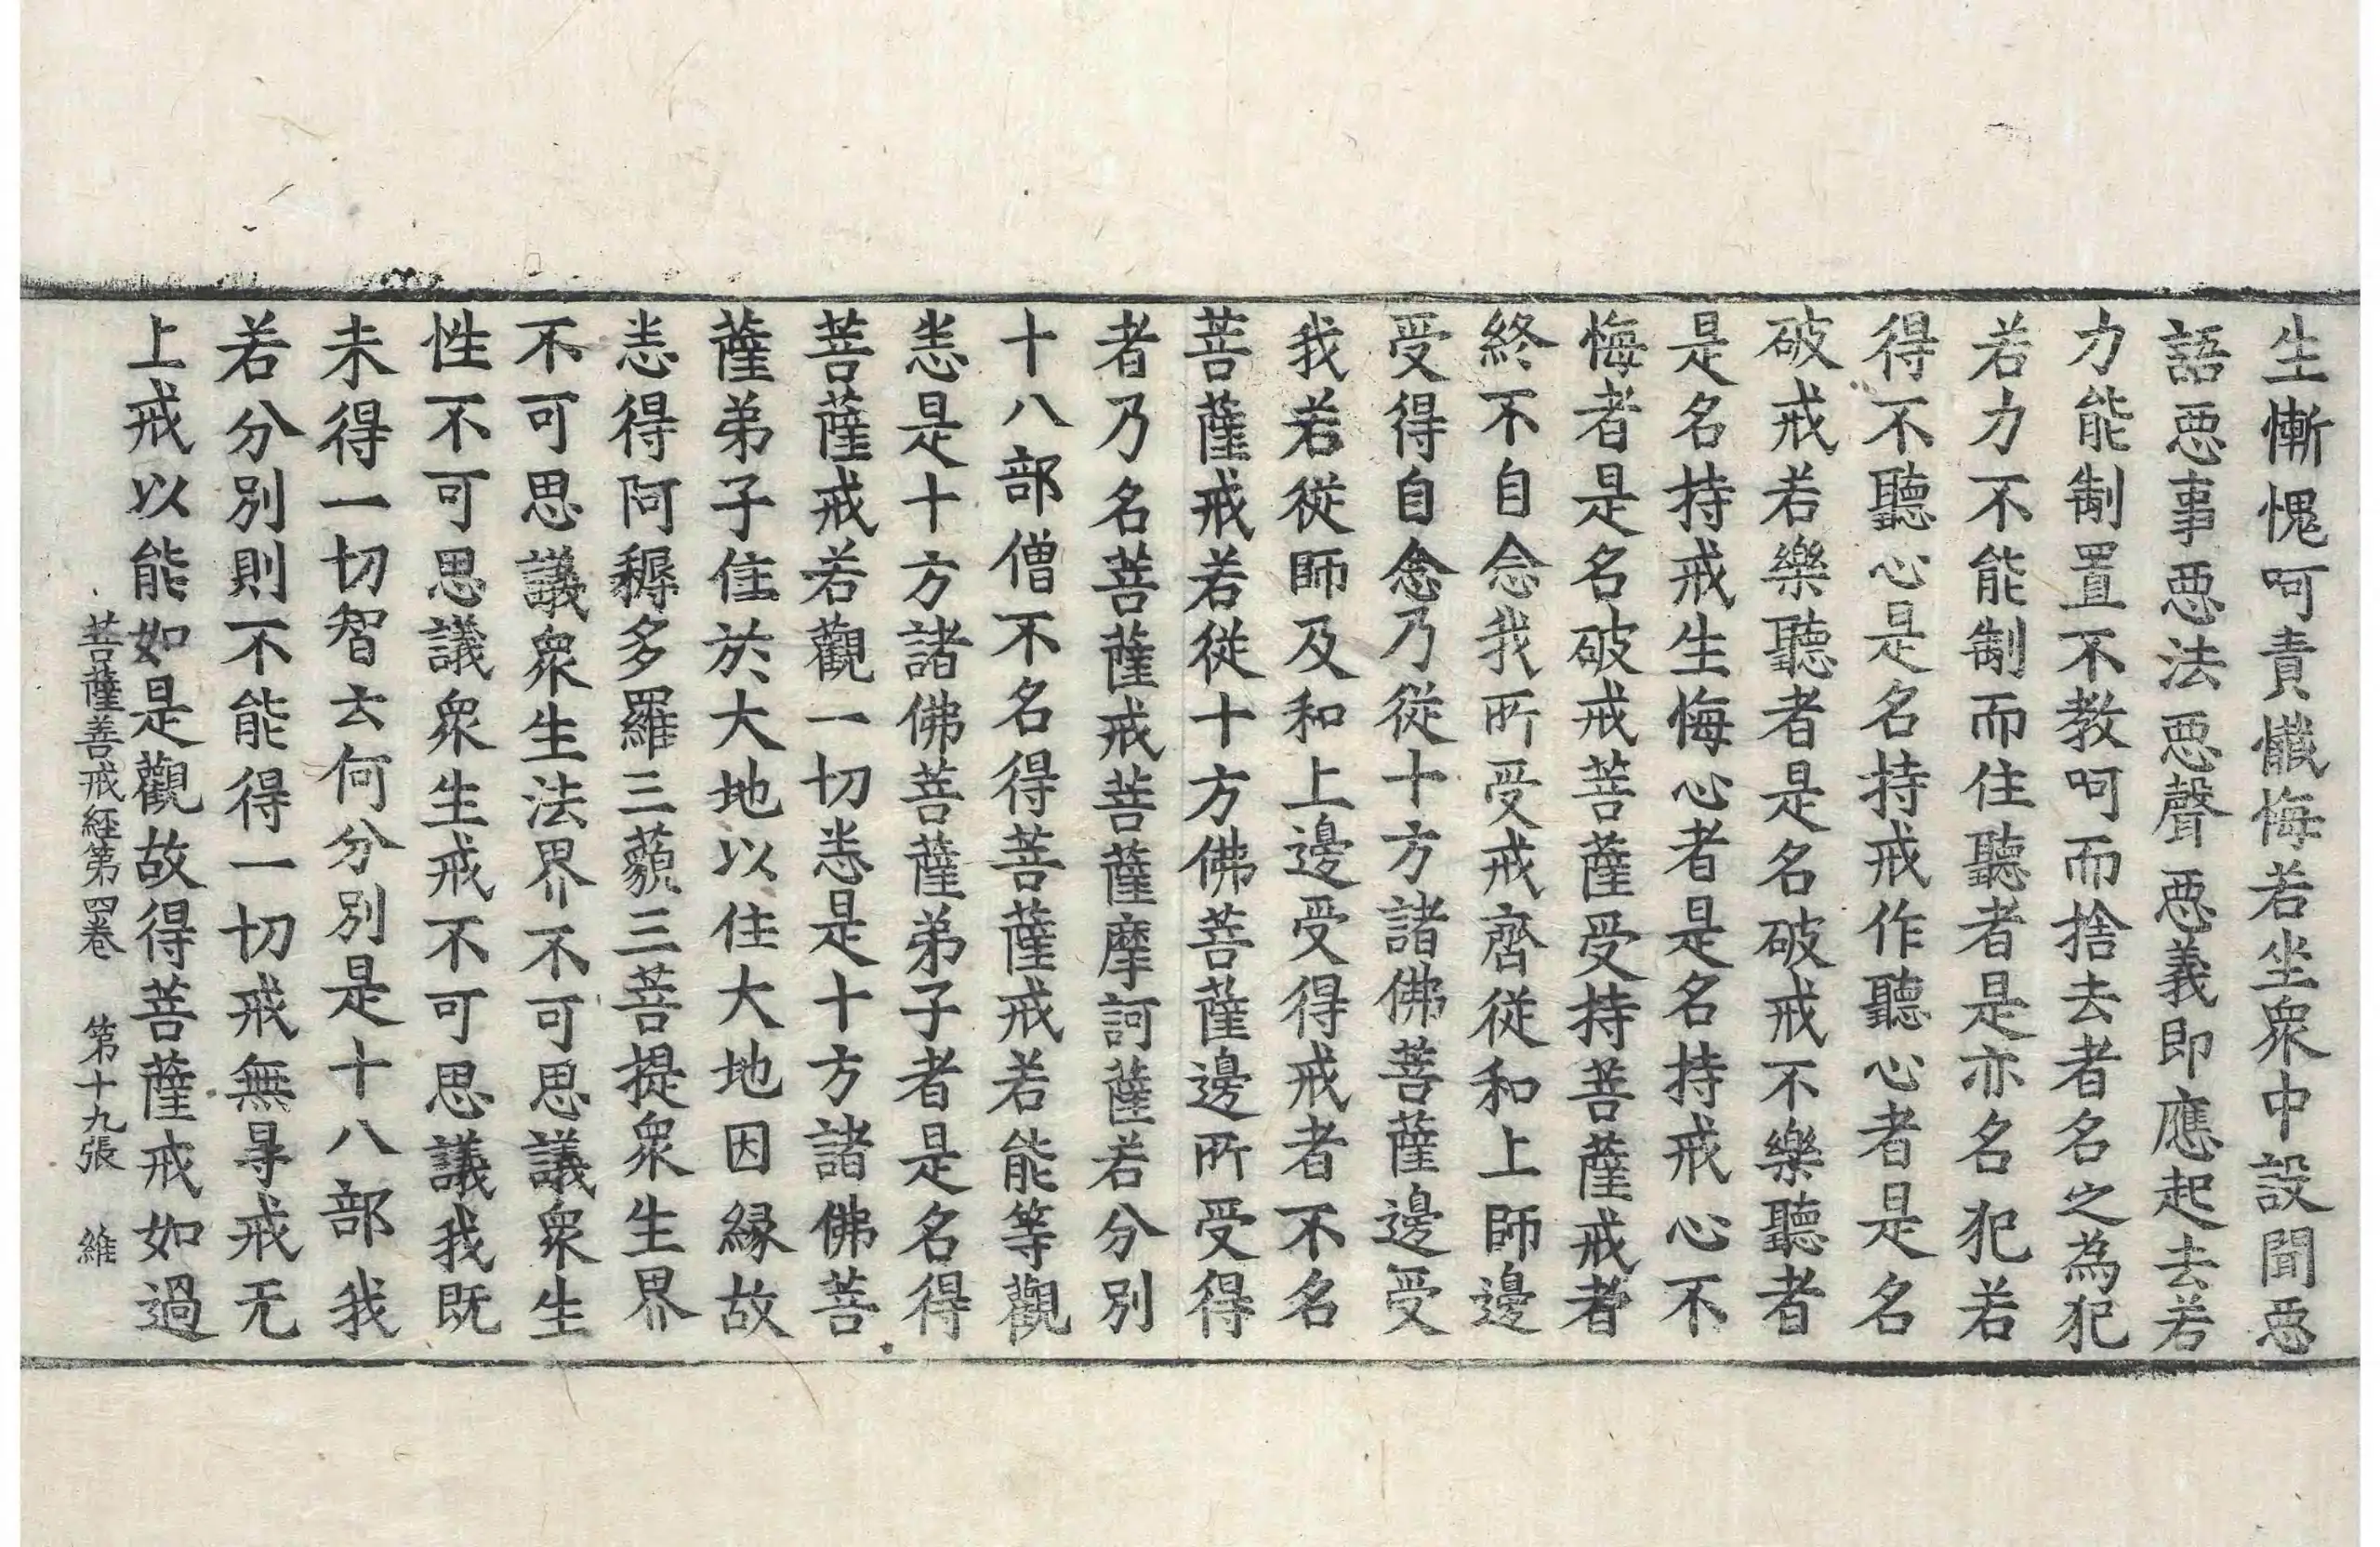 生慚愧呵責懺悔若坐衆中設聞惡
語惡事惡法惡聲惡義即應起去若
力能制置不教呵而捨去者名之為犯
若力不能制而住聽者是亦名犯若
得不聽心是名持戒作聽心者是名
破戒若樂聽者是名破戒不樂聽者
是名持戒生悔心者是名持戒心不
悔者是名破戒菩薩受持菩薩戒者
終不自念我所受戒齊從和上師邊
受得自念乃從十方諸佛菩薩邊受
我若從師及和上邊受得戒者不名
菩薩戒若從十方佛菩薩邊所受得
者乃名菩薩戒菩薩摩訶薩若分別
十八部僧不名得菩薩戒若能等觀
悉是十方諸佛菩薩弟子者是名得
菩薩戒若觀一切悉是十方諸佛菩
薩弟子住於大地以住大地因緣故
悉得阿耨多羅三藐三菩提衆生界
不可思議衆生法界不可思議衆生
性不可思議衆生戒不可思議我既
未得一切智云何分別是十八部我
若分別則不能得一切戒無㝵戒无
上戒以能如是觀故得菩薩戒如過
菩薩善戒経第四卷 第十九張 維